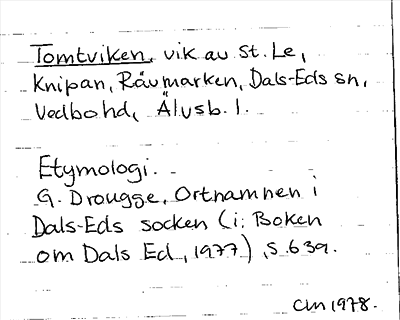 Tomtviken, vik av St. Le,
Knipan, Rävmarken, Dals-Eds sn,
Vedbo hd, Älvsb. l.
Etymologi.
G. Drougge, Ortnamnen i
Dals-Eds socken (i: Boken
om Dals Ed, 1977), s. 639.
CM 1978.